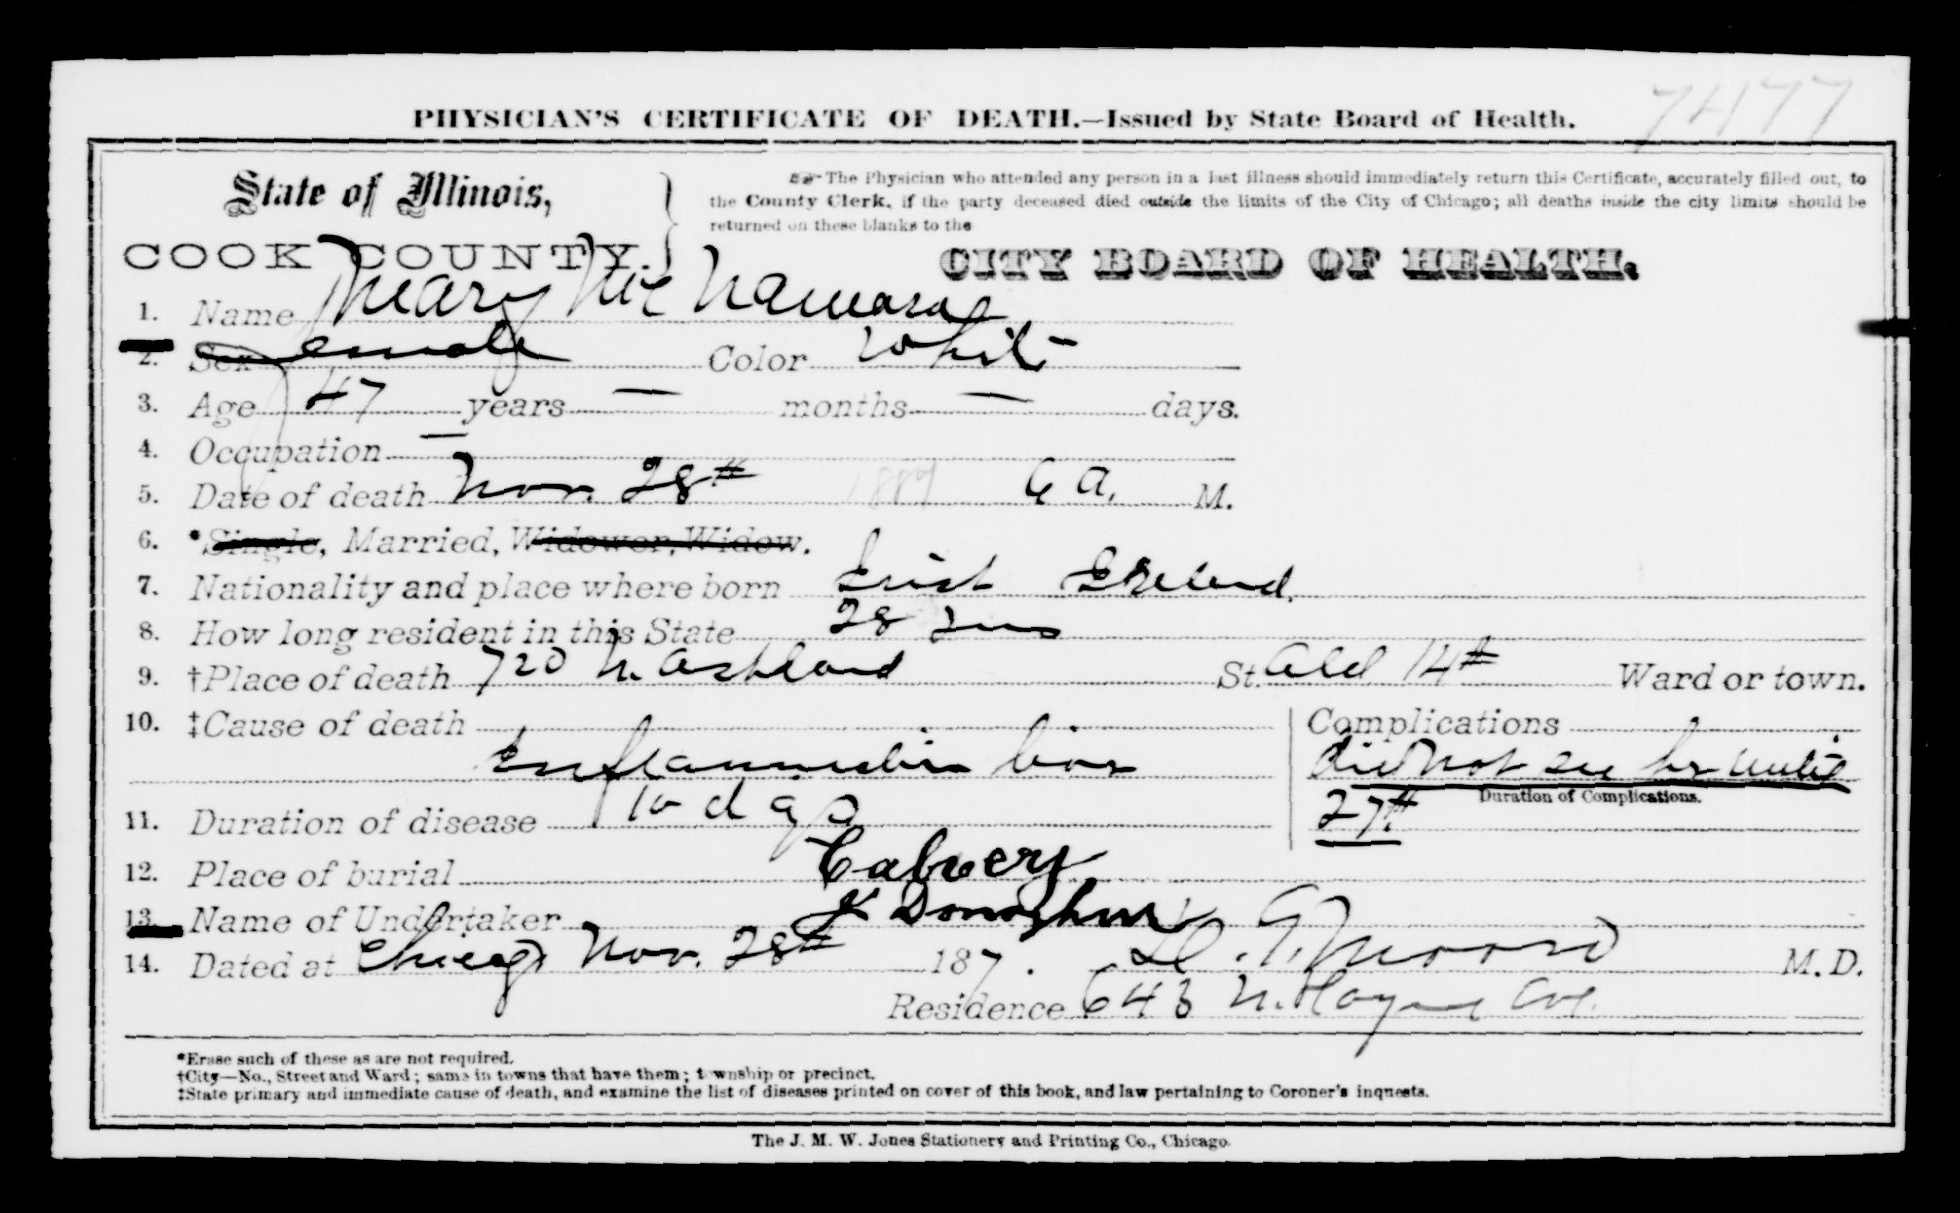 7477
PHYSICIAN'S CERTIFICATE OF DEATH.—Issued by State Board of Health.
State of Illinois,
COOK COUNTY.
The Physician who attended any person in a last illness should immediately return this Certificate, accurately filled out, to
the County Clerk, if the party deceased died outside the limits of the City of Chicago; all deaths inside the city limits should be
returned on these blanks to the
CITY BOARD OF HEALTH.
1. Name Mary McNamara
2. Sex Female Color White
3. Age 47 years — months — days.
4. Occupation —
5. Date of death Nov. 28th 1887 6 A. M.
6. *Single, Married, Widower, Widow.
7. Nationality and place where born Irish Ireland.
8. How long resident in this State 28 yrs
9. †Place of death 720 N. Ashland St. Old 14th Ward or town.
10. ‡Cause of death Complications
did not see her until
Duration of Complications.
27th
11. Duration of disease 10 dys
12. Place of burial Calvery
13. Name of Undertaker J Donoghue
14. Dated at Chicago Nov. 28th 187 . M.D.
Residence 643 N. Hoyne Ave.
*Erase such of these as are not required.
†City—No., Street and Ward; same in towns that have them; township or precinct.
‡State primary and immediate cause of death, and examine the list of diseases printed on cover of this book, and law pertaining to Coroner's inquests.
The J. M. W. Jones Stationery and Printing Co., Chicago.